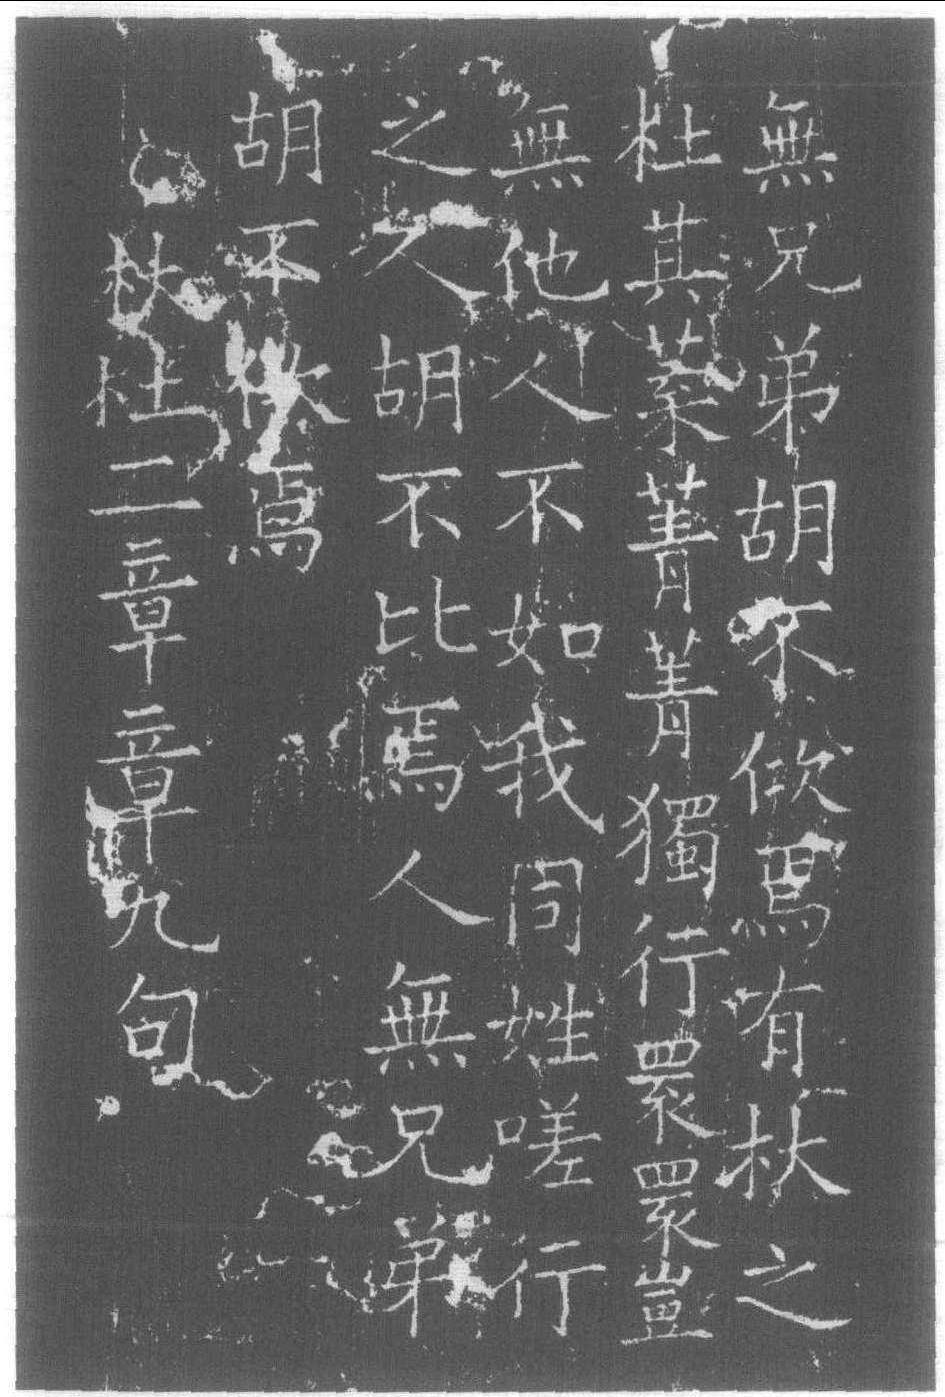 無兄弟胡不佽焉有杕之
杜其葉菁菁獨行睘睘豈
無他人不如我同姓嗟行
之人胡不比焉人無兄弟
胡不佽焉
杕杜二章章九句